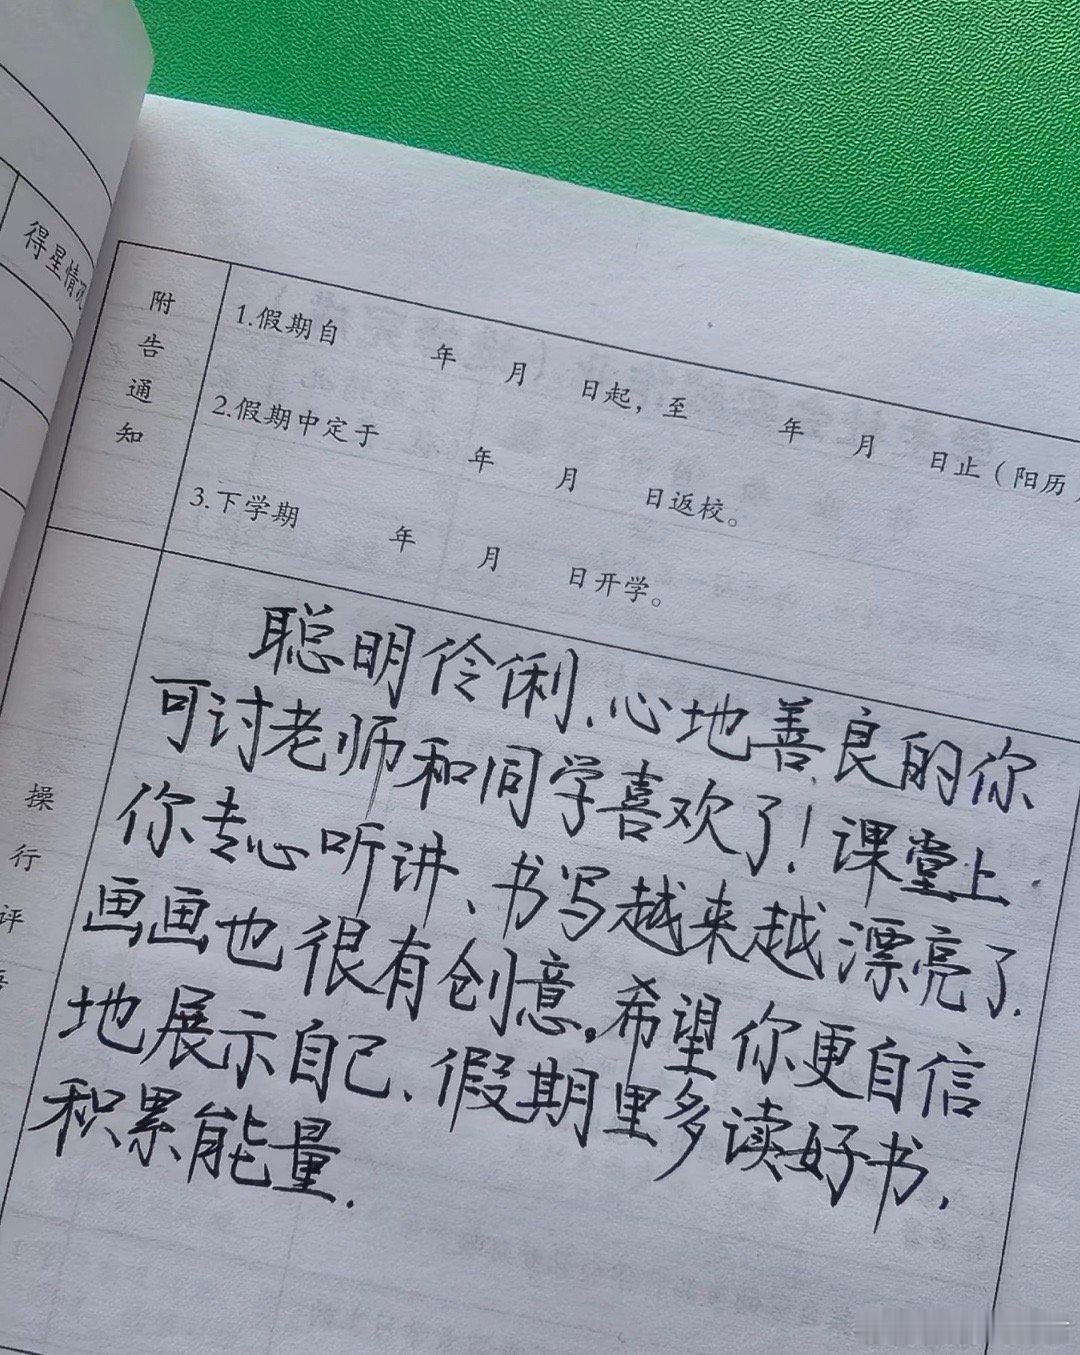 得星情况
附告通知
1.假期自 年 月 日起，至 年 月 日止（阳历）
2.假期中定于 年 月 日返校。
3.下学期 年 月 日开学。
操行评
聪明伶俐、心地善良的你
可讨老师和同学喜欢了！课堂上
你专心听讲、书写越来越漂亮了.
画画也很有创意。希望你更自信
地展示自己、假期里多读好书，
积累能量.